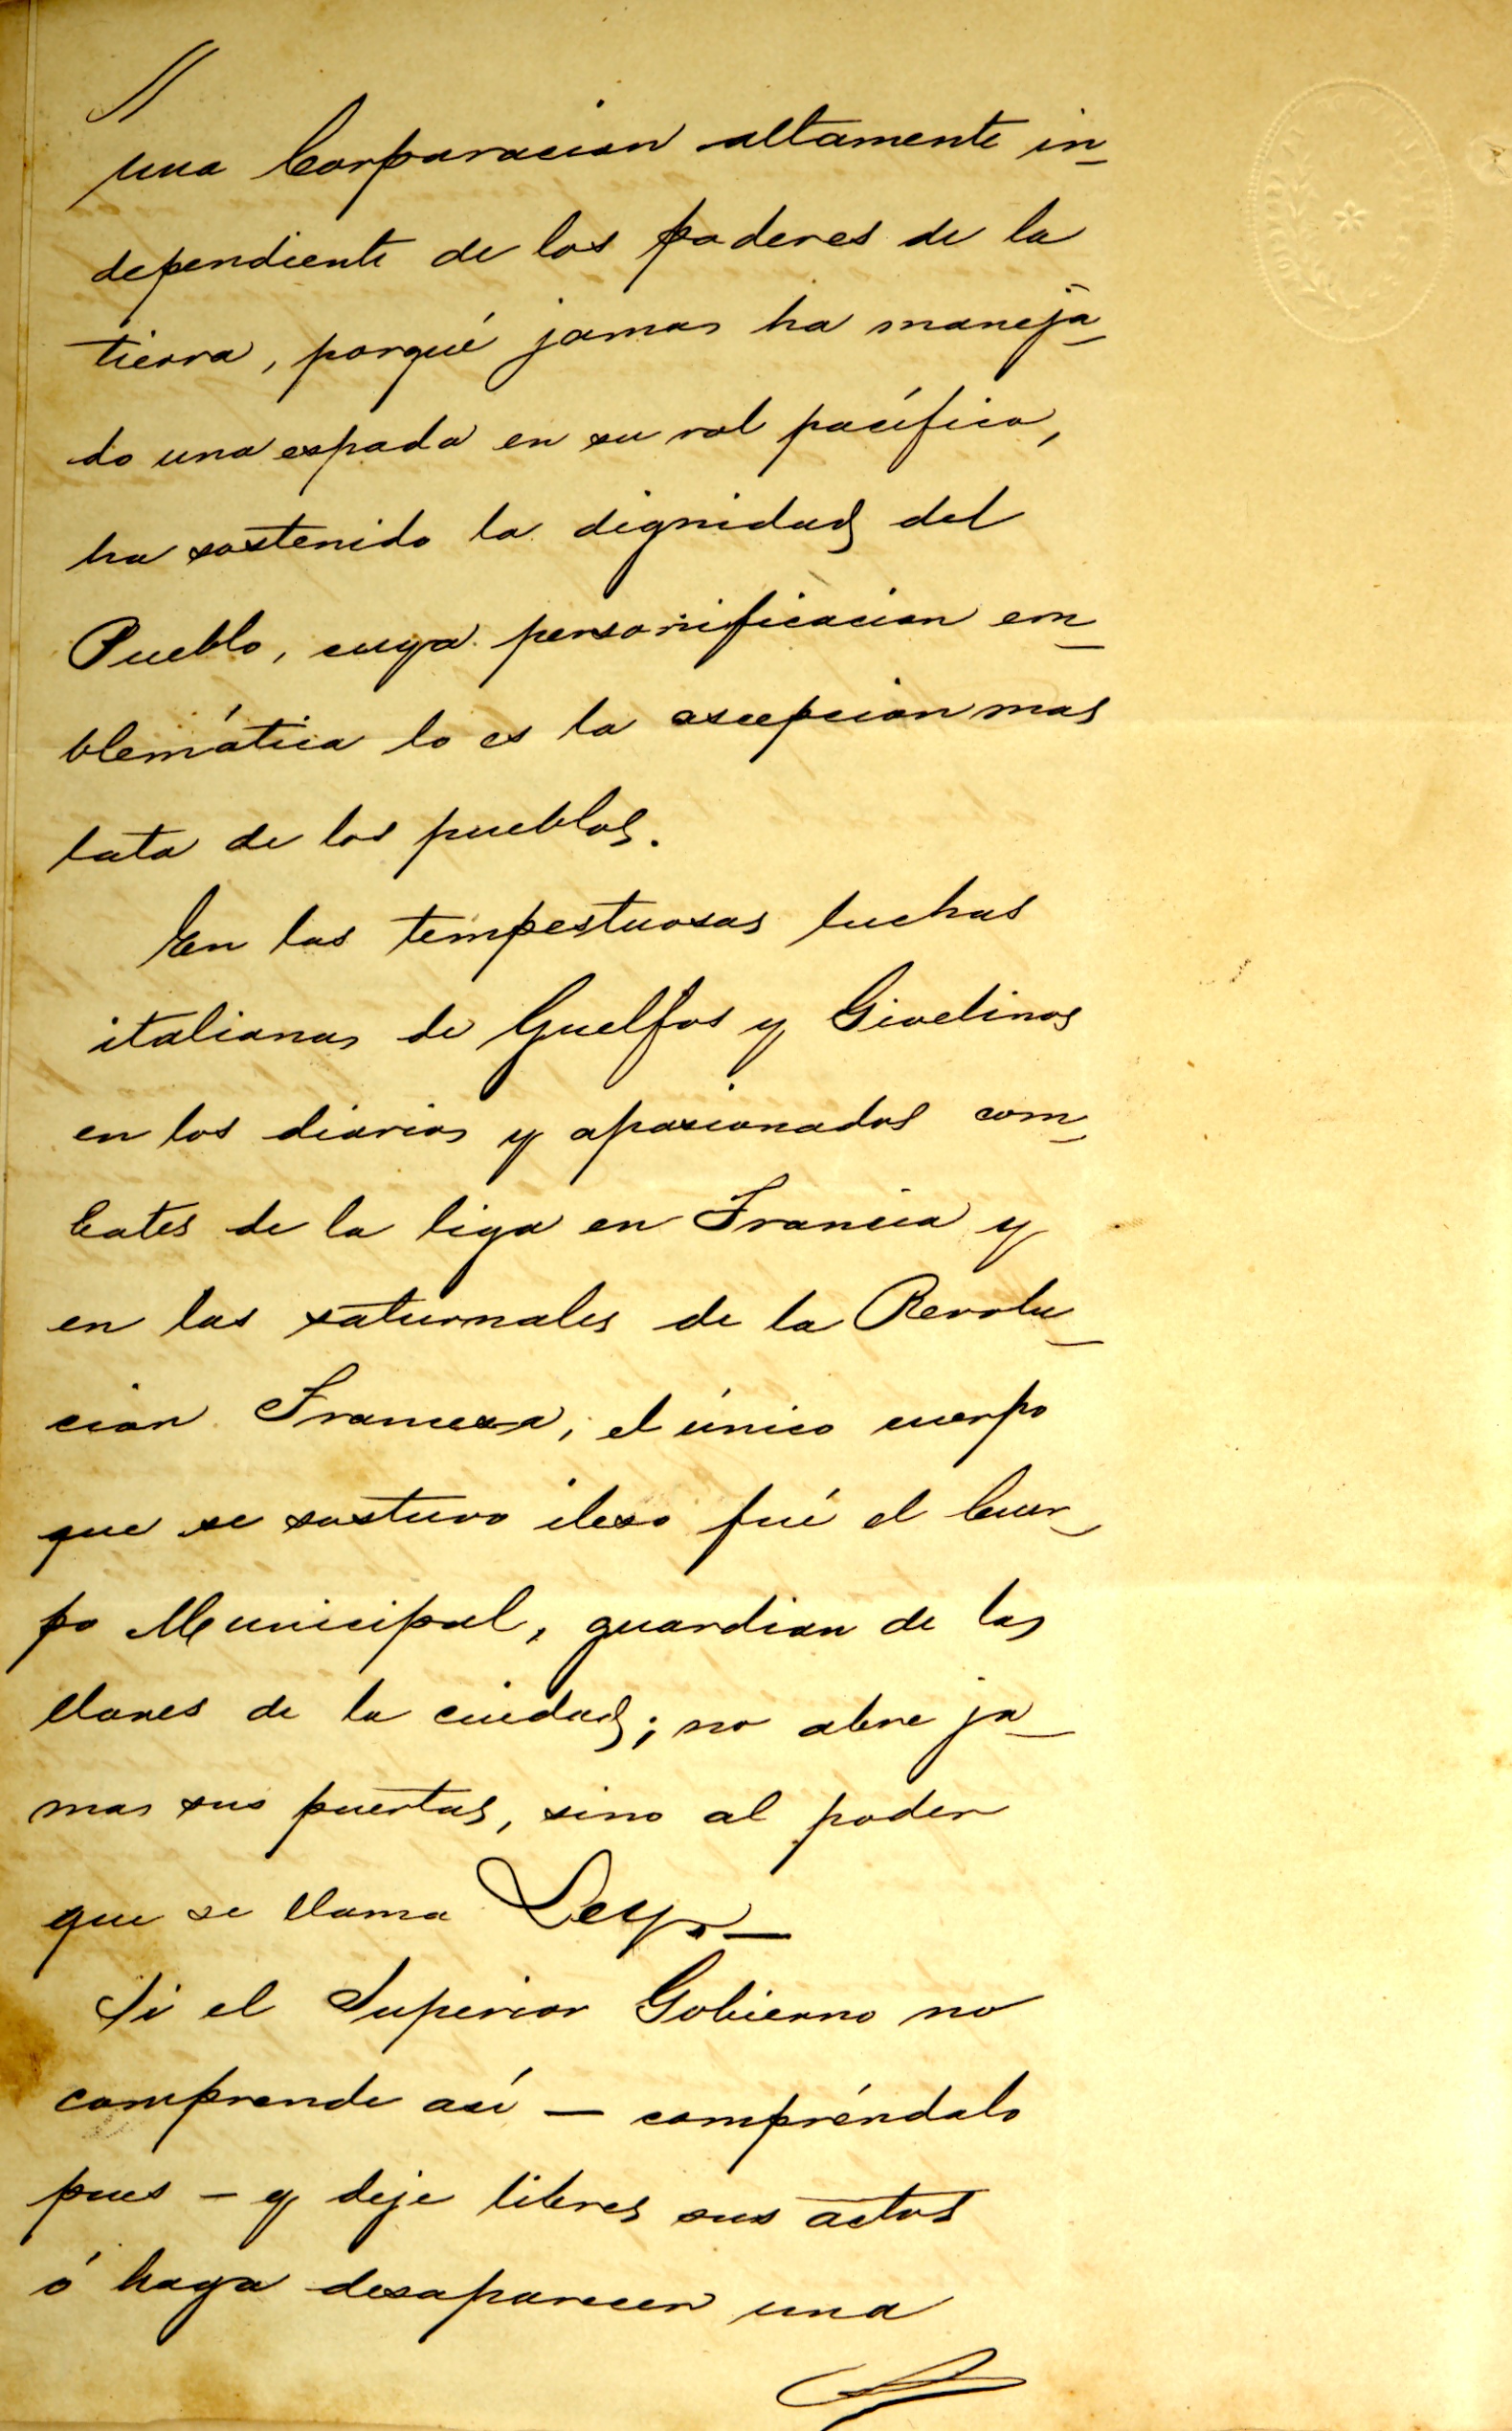 una Corporacion altamente in-
dependiente de los poderes de la
tierra, porqué jamas ha maneja-
do una espada en su rol pacífico,
ha sostenido la dignidad del
Pueblo, cuya personificacion em-
blemática lo es la asepcion mas
lata de los pueblos.
En las tempestuosas luchas
italianas de Guelfos y Givelinos
en los diarios y apasionados com-
bates de la liga en Francia y
en las saturnales de la Revolu-
cion Francesa, el único cuerpo
que se sostuvo ileso fué el Cuer-
po Municipal, guardian de las
llaves de la ciudad; no abre ja-
mas sus puertas, sino al poder
que se llama Ley. —
Si el Superior Gobierno no
comprende así — compréndalo
pues — y deje libres sus actos
ó haga desaparecer una